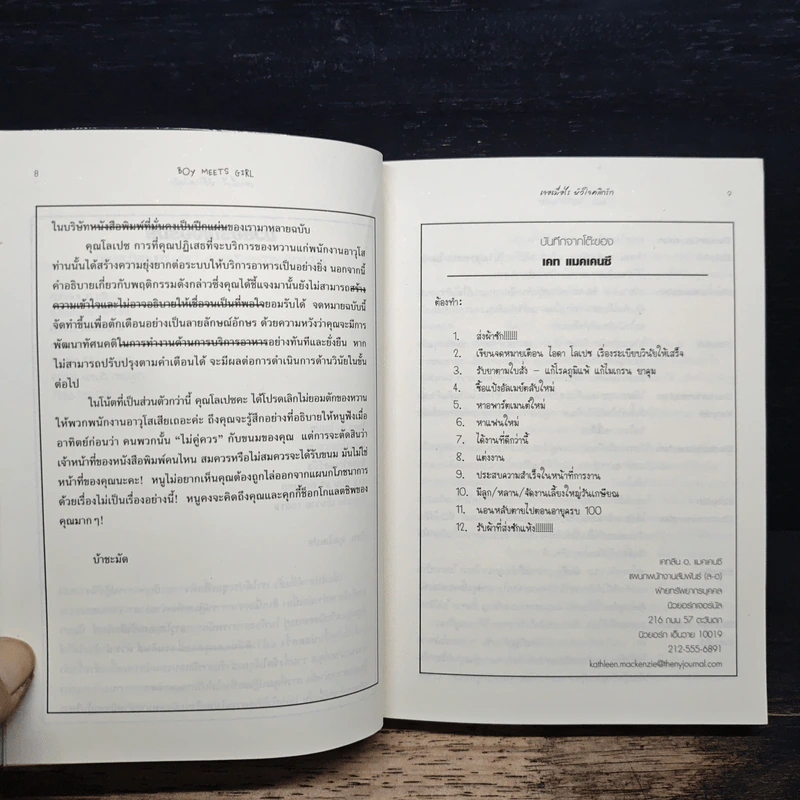 8
BOY MEETS GIRL
ในบริษัทหนังสือพิมพ์ที่มั่นคงเป็นปึกแผ่นของเรามาหลายฉบับ
คุณโลเปซ การที่คุณปฏิเสธที่จะบริการของหวานแก่พนักงานอาวุโส
ท่านนั้นได้สร้างความยุ่งยากต่อระบบให้บริการอาหารเป็นอย่างยิ่ง นอกจากนี้
คำอธิบายเกี่ยวกับพฤติกรรมดังกล่าวซึ่งคุณได้ชี้แจงมานั้นยังไม่สามารถสร้าง
ความเข้าใจและไม่อาจอธิบายให้เชื่อจนเป็นที่พอใจยอมรับได้ จดหมายฉบับนี้
จัดทำขึ้นเพื่อตักเตือนอย่างเป็นลายลักษณ์อักษร ด้วยความหวังว่าคุณจะมีการ
พัฒนาทัศนคติในการทำงานด้านการบริการอาหารอย่างทันทีและยั่งยืน หาก
ไม่สามารถปรับปรุงตามคำเตือนได้ จะมีผลต่อการดำเนินการด้านวินัยในขั้น
ต่อไป
ในโน้ตที่เป็นส่วนตัวกว่านี้ คุณโลเปซคะ ได้โปรดเลิกไม่ยอมตักของหวาน
ให้พวกพนักงานอาวุโสเสียเถอะค่ะ ถึงคุณจะรู้สึกอย่างที่อธิบายให้หนูฟังเมื่อ
อาทิตย์ก่อนว่า คนพวกนั้น “ไม่คู่ควร” กับขนมของคุณ แต่การจะตัดสินว่า
เจ้าหน้าที่ของหนังสือพิมพ์คนไหน สมควรหรือไม่สมควรจะได้รับขนม มันไม่ใช่
หน้าที่ของคุณนะคะ! หนูไม่อยากเห็นคุณต้องถูกไล่ออกจากแผนกโภชนาการ
ด้วยเรื่องไม่เป็นเรื่องอย่างนี้! หนูคงจะคิดถึงคุณและคุกกี้ช็อกโกแลตชิพของ
คุณมากๆ!
บ้าชะมัด
๙
บันทึกจากโต๊ะของ
เคท แมคเคนซี
ต้องทำ:
1. ส่งผ้าซัก!!!!!!!
2. เขียนจดหมายเตือน ไอดา โลเปซ เรื่องระเบียบวินัยให้เสร็จ
3. รับยาตามใบสั่ง – แก้โรคภูมิแพ้ แก้ไมเกรน ยาคุม
4. ซื้อแป้งอัลเมย์ตลับใหม่
5. หาอพาร์ตเมนต์ใหม่
6. หาแฟนใหม่
7. ได้งานที่ดีกว่านี้
8. แต่งงาน
9. ประสบความสำเร็จในหน้าที่การงาน
10. มีลูก/หลาน/จัดงานเลี้ยงใหญ่วันเกษียณ
11. นอนหลับตายไปตอนอายุครบ 100
12. รับผ้าที่ส่งซักแห้ง!!!!!!!!!
เคทลีน อ. แมคเคนซี
แผนกพนักงานสัมพันธ์ (ล-อ)
ฝ่ายทรัพยากรบุคคล
นิวยอร์กเจอร์นัล
216 ถนน 57 ตะวันตก
นิวยอร์ก เอ็นวาย 10019
212-555-6891
kathleen.mackenzie@thenyjournal.com